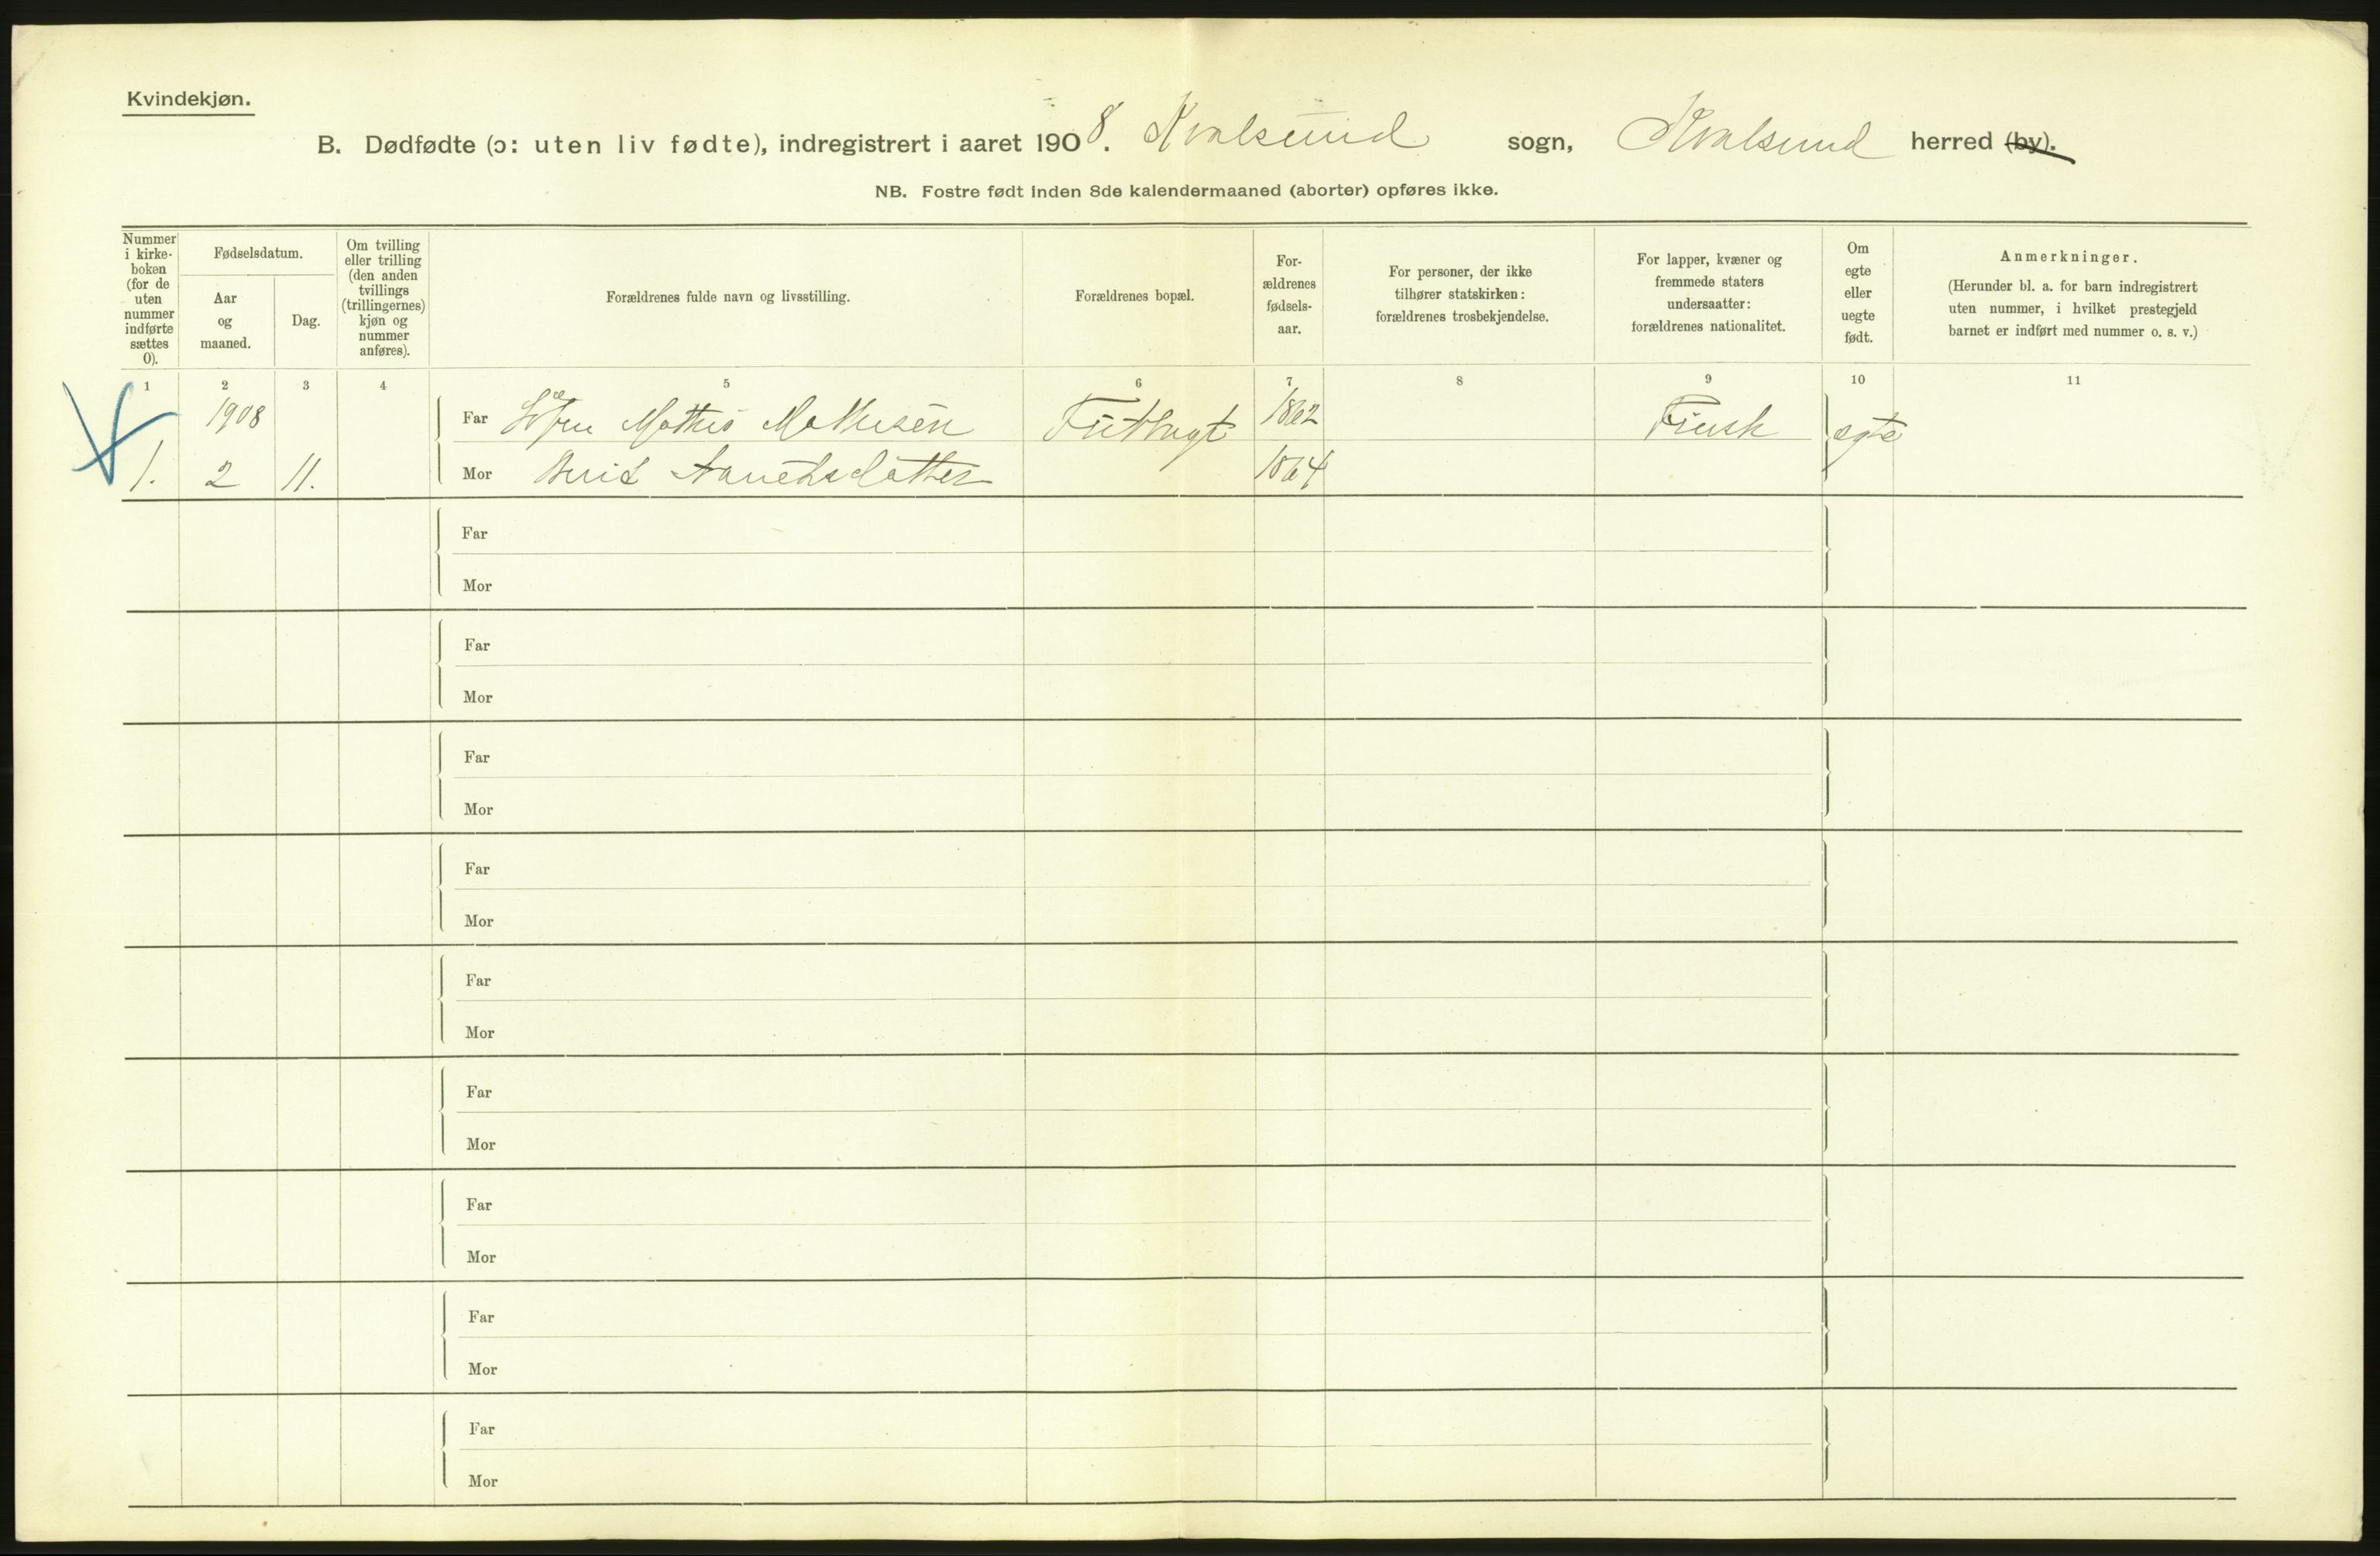 Kvindekjøn.
B. Dødfødte (ɔ: uten liv fødte), indregistrert i aaret 1908. Kvalsund sogn, Kvalsund herred (by).
NB. Fostre født inden 8de kalendermaaned (aborter) opføres ikke.
Nummer i kirke-boken (for de uten nummer indførte sættes 0).
Fødselsdatum.
Aar og maaned.
Dag.
Om tvilling eller trilling (den anden tvillings (trillingernes) kjøn og nummer anføres).
Forældrenes fulde navn og livsstilling.
Forældrenes bopæl.
For-ældrenes fødsels-aar.
For personer, der ikke tilhører statskirken: forældrenes trosbekjendelse.
For lapper, kvæner og fremmede staters undersaatter: forældrenes nationalitet.
Om egte eller uegte født.
Anmerkninger.
(Herunder bl. a. for barn indregistrert uten nummer, i hvilket prestegjeld barnet er indført med nummer o. s. v.)
1 2 3 4 5 6 7 8 9 10 11
1908 Far Mathis Mathisen 1862 Finsk egte
1. 2 11. Mor Berit 1864
Far
Mor
Far
Mor
Far
Mor
Far
Mor
Far
Mor
Far
Mor
Far
Mor
Far
Mor
Far
Mor